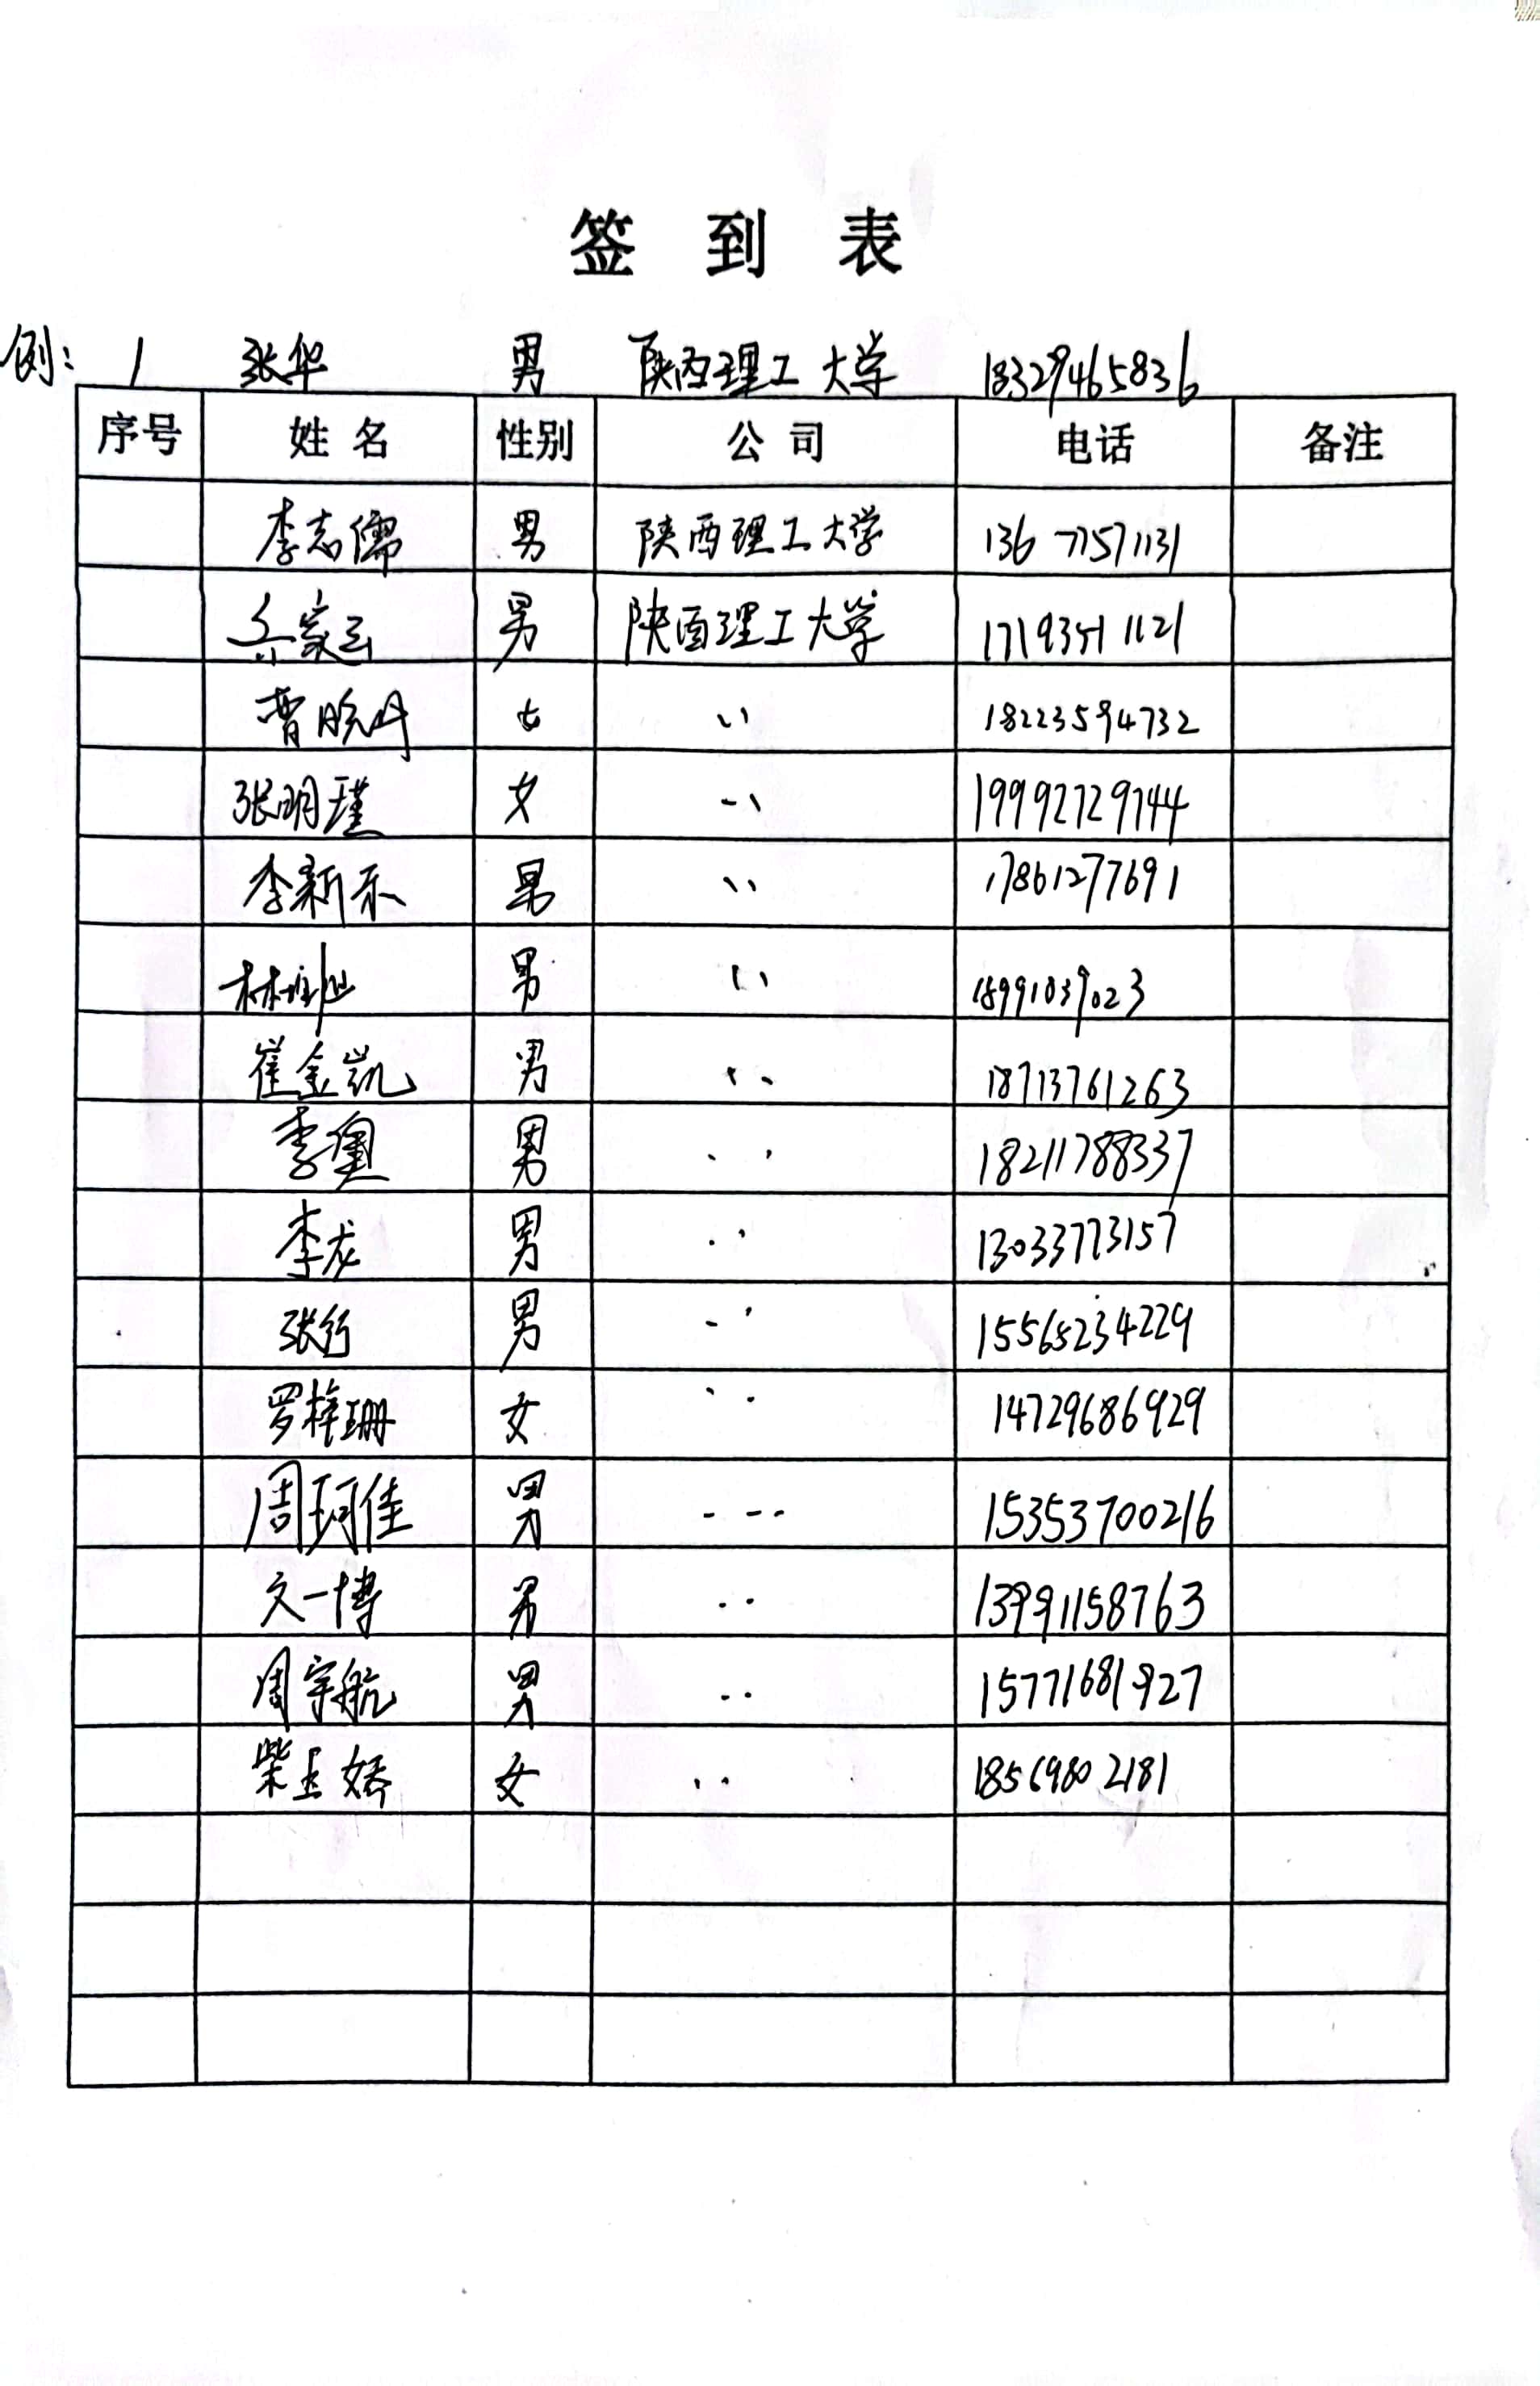 签 到 表
例: 1 张华 男 陕西理工大学 18329465836
序号 姓名 性别 公司 电话 备注
李志儒 男 陕西理工大学 13677571131
男 陕西理工大学 17193511121
曹晓丹 女 〃 18223594732
张明瑾 女 〃 19992729744
李新乐 男 〃 17861277691
男 〃 18991039023
崔金凯 男 〃 18713761263
李奥 男 〃 18211788337
李龙 男 〃 13033773157
张行 男 〃 15565234229
罗梓珊 女 〃 14729686929
周珂佳 男 〃 15353700216
文一博 男 〃 13991158763
周宇航 男 〃 15771681927
柴玉婷 女 〃 18569802181